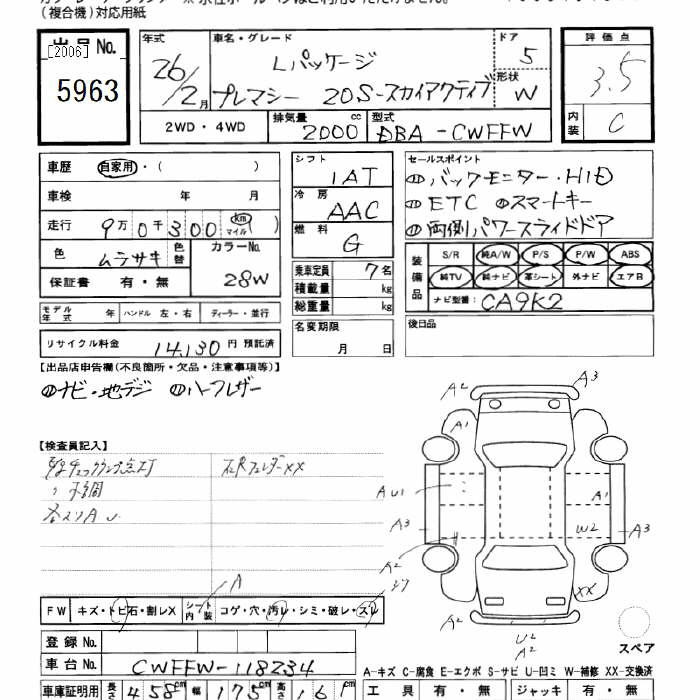 (複合機)対応用紙
出品No.
[2006]
5963
年式 車名・グレード ドア 評価点
26/2月 Lパッケージ 5 3.5
プレマシー 20S-スカイアクティブ 形状 W
2WD・4WD 排気量 2000 cc 型式 DBA-CWFFW 内装 C
車歴 自家用・( )
車検 年 月
走行 9万0千300 km マイル
色 ムラサキ 色替 カラーNo. 28W
保証書 有・無
シフト 1AT
冷房 AAC
燃料 G
乗車定員 7名
積載量 kg
総重量 kg
名変期限 月 日
セールスポイント
バックモニター・HID
ETC スマートキー
両側パワースライドドア
装備品 S/R 純A/W P/S P/W ABS
純TV 純ナビ 革シート 外ナビ エアB
ナビ型番: CA9K2
後日品
モデル年式 年 ハンドル 左・右 ディーラー・並行
リサイクル料金 14,130 円 預託済
【出品店申告欄(不良箇所・欠品・注意事項等)】
ナビ・地デジ ハーフレザー
【検査員記入】
A2 A3
A1
AU1 A1
A3 W2 A3
A2
XX
A2 U2 A2
A2
FW キズ・トビ石・割レX シート内装 コゲ・穴・汚レ・シミ・破レ・スレ
A
登録No.
車台No. CWFFW-118234
スペア
A-キズ C-腐食 E-エクボ S-サビ U-凹ミ W-補修 XX-交換済
車庫証明用 長さ 458cm 幅 175cm 高さ 161cm
工具 有・無 ジャッキ 有・無